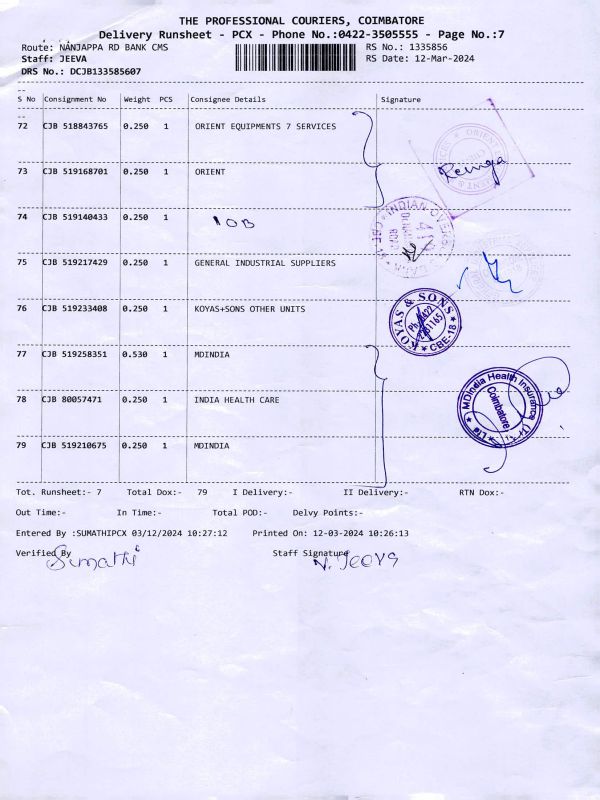 THE PROFESSIONAL COURIERS, COIMBATORE
Delivery Runsheet - PCX - Phone No.:0422-3505555 - Page No.:7
Route: NANJAPPA RD BANK CMS RS No.: 1335856
Staff: JEEVA RS Date: 12-Mar-2024
DRS No.: DCJB133585607
S No Consignment No Weight PCS Consignee Details Signature
72 CJB 518843765 0.250 1 ORIENT EQUIPMENTS 7 SERVICES
Renga
73 CJB 519168701 0.250 1 ORIENT
74 CJB 519140433 0.250 1 IOB
75 CJB 519217429 0.250 1 GENERAL INDUSTRIAL SUPPLIERS
76 CJB 519233408 0.250 1 KOYAS+SONS OTHER UNITS
KOYAS & SONS
CBE-18
77 CJB 519258351 0.530 1 MDINDIA
78 CJB 80057471 0.250 1 INDIA HEALTH CARE
MDIndia Health Insurance
Coimbatore
79 CJB 519210675 0.250 1 MDINDIA
Tot. Runsheet:- 7 Total Dox:- 79 I Delivery:- II Delivery:- RTN Dox:-
Out Time:- In Time:- Total POD:- Delvy Points:-
Entered By :SUMATHIPCX 03/12/2024 10:27:12 Printed On: 12-03-2024 10:26:13
Verified By Sumathi Staff Signature N. Jeeva